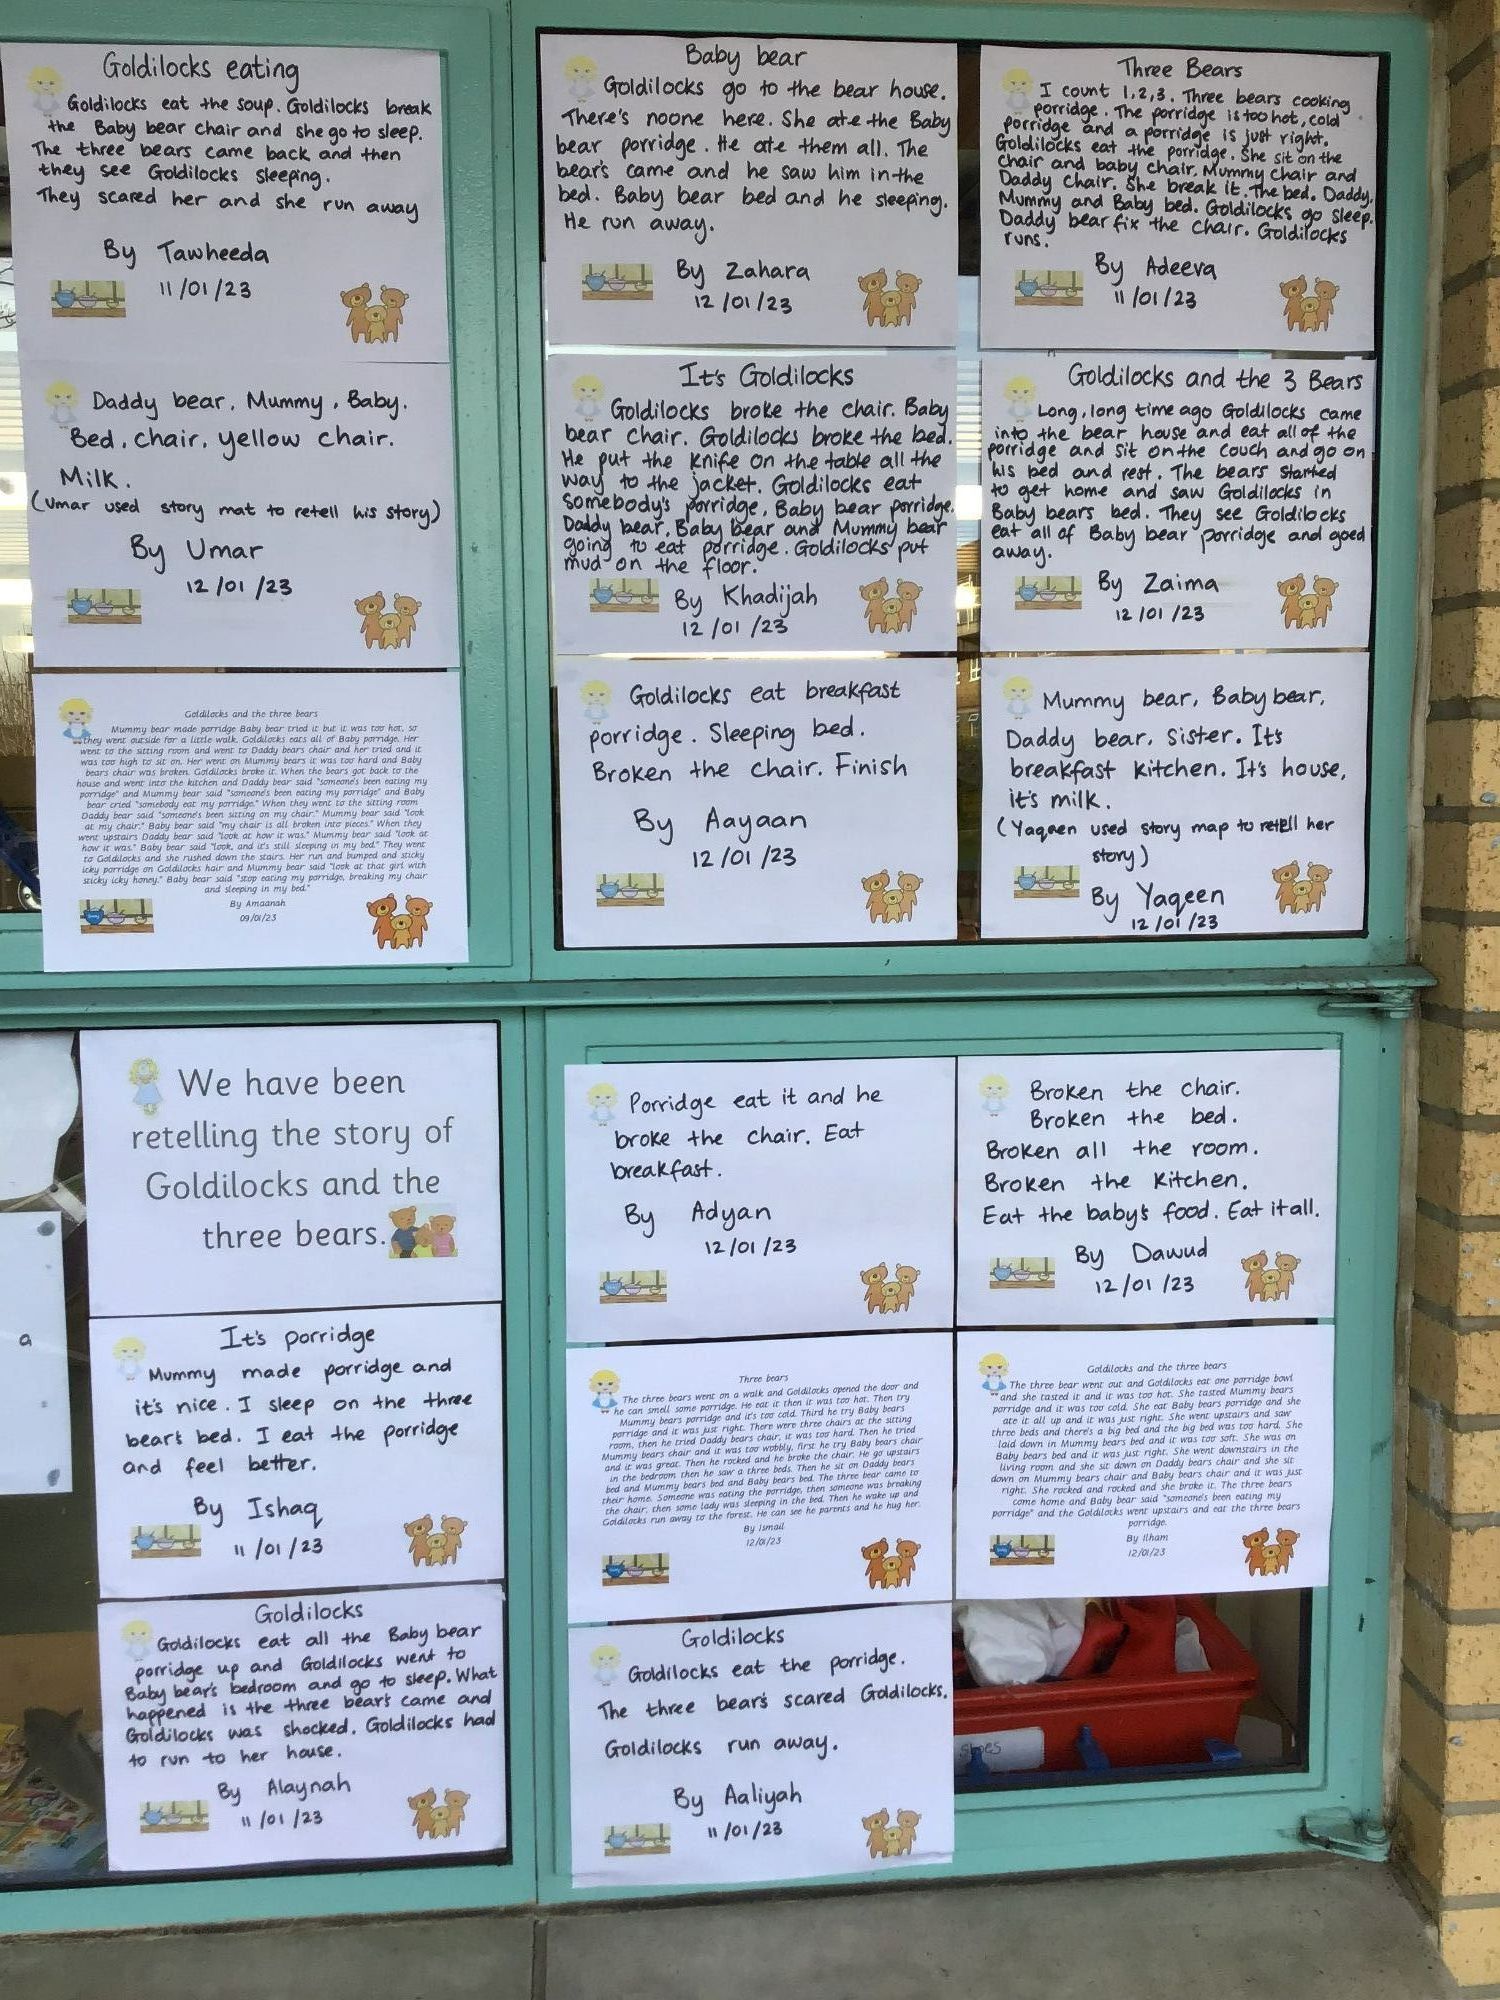 Goldilocks eating
Goldilocks eat the soup. Goldilocks break
the Baby bear chair and she go to sleep.
The three bears came back and then
they see Goldilocks sleeping.
They scared her and she run away
By Tawheeda
11/01/23
Daddy bear, Mummy, Baby.
Bed, chair, yellow chair.
Milk.
(Umar used story mat to retell his story)
By Umar
12/01/23
Goldilocks and the three bears
Mummy bear made porridge Baby bear tried it but it was too hot, so
they went outside for a little walk. Goldilocks eats all of Baby porridge. Her
went to the sitting room and went to Daddy bears chair and her tried and it
was too high to sit on. Her went on Mummy bears it was too hard and Baby
bears chair was broken. Goldilocks broke it. When the bears got back to the
house and went into the kitchen and Daddy bear said "someone's been eating my
porridge" and Mummy bear said "someone's been eating my porridge" and Baby
bear cried "somebody eat my porridge." When they went to the sitting room
Daddy bear said "someone's been sitting on my chair." Mummy bear said "look
at my chair." Baby bear said "my chair is all broken into pieces." When they
went upstairs Daddy bear said "look at how it was." Mummy bear said "look at
how it was." Baby bear said "look, and it's still sleeping in my bed." They went
to Goldilocks and she rushed down the stairs. Her run and bumped and sticky
icky porridge on Goldilocks hair and Mummy bear said "look at that girl with
sticky icky honey." Baby bear said "stop eating my porridge, breaking my chair
and sleeping in my bed."
By Amaanah
09/01/23
Baby bear
Goldilocks go to the bear house.
There's noone here. She ate the Baby
bear porridge. He ate them all. The
bear's came and he saw him in the
bed. Baby bear bed and he sleeping.
He run away.
By Zahara
12/01/23
Three Bears
I count 1,2,3. Three bears cooking
porridge. The porridge is too hot, cold
porridge and a porridge is just right.
Goldilocks eat the porridge. She sit on the
chair and baby chair, Mummy chair and
Daddy chair. She break it. The bed. Daddy,
Mummy and Baby bed. Goldilocks go sleep.
Daddy bear fix the chair. Goldilocks
runs.
By Adeeva
11/01/23
It's Goldilocks
Goldilocks broke the chair. Baby
bear chair. Goldilocks broke the bed.
He put the knife on the table all the
way to the jacket. Goldilocks eat
somebody's porridge, Baby bear porridge.
Daddy bear, Baby bear and Mummy bear
going to eat porridge. Goldilocks put
mud on the floor.
By Khadijah
12/01/23
Goldilocks and the 3 Bears
Long, long time ago Goldilocks came
into the bear house and eat all of the
porridge and sit on the couch and go on
his bed and rest. The bears started
to get home and saw Goldilocks in
Baby bears bed. They see Goldilocks
eat all of Baby bear porridge and goed
away.
By Zaima
12/01/23
Goldilocks eat breakfast
porridge. Sleeping bed.
Broken the chair. Finish
By Aayaan
12/01/23
Mummy bear, Baby bear,
Daddy bear, Sister. It's
breakfast kitchen. It's house,
it's milk.
(Yaqeen used story map to retell her
story)
By Yaqeen
12/01/23
We have been
retelling the story of
Goldilocks and the
three bears.
It's porridge
Mummy made porridge and
it's nice. I sleep on the three
bear's bed. I eat the porridge
and feel better.
By Ishaq
11/01/23
Goldilocks
Goldilocks eat all the Baby bear
porridge up and Goldilocks went to
Baby bear's bedroom and go to sleep. What
happened is the three bear's came and
Goldilocks was shocked. Goldilocks had
to run to her house.
By Alaynah
11/01/23
Porridge eat it and he
broke the chair. Eat
breakfast.
By Adyan
12/01/23
Broken the chair.
Broken the bed.
Broken all the room.
Broken the kitchen.
Eat the baby's food. Eat it all.
By Dawud
12/01/23
Three bears
The three bears went on a walk and Goldilocks opened the door and
he can smell some porridge. He eat it then it was too hot. Then try
Mummy bears porridge and it's too cold. Third he try Baby bears
porridge and it was just right. There were three chairs at the sitting
room, then he tried Daddy bears chair, it was too hard. Then he tried
Mummy bears chair and it was too wobbly, first he try Baby bears chair
and it was great. Then he rocked and he broke the chair. He go upstairs
in the bedroom then he saw a three beds. Then he sit on Daddy bears
bed and Mummy bears bed and Baby bears bed. The three bear came to
their home. Someone was eating the porridge, then someone was breaking
the chair, then some lady was sleeping in the bed. Then he wake up and
Goldilocks run away to the forest. He can see he parents and he hug her.
By Ismail
12/01/23
Goldilocks and the three bears
The three bear went out and Goldilocks eat one porridge bowl
and she tasted it and it was too hot. She tasted Mummy bears
porridge and it was too cold. She eat Baby bears porridge and she
ate it all up and it was just right. She went upstairs and saw
three beds and there's a big bed and the big bed was too hard. She
laid down in Mummy bears bed and it was too soft. She was on
Baby bears bed and it was just right. She went downstairs in the
living room and she sit down on Daddy bears chair and she sit
down on Mummy bears chair and Baby bears chair and it was just
right. She rocked and rocked and she broke it. The three bears
come home and Baby bear said "someone's been eating my
porridge" and the Goldilocks went upstairs and eat the three bears
porridge.
By Ilham
12/01/23
Goldilocks
Goldilocks eat the porridge.
The three bear's scared Goldilocks.
Goldilocks run away.
By Aaliyah
11/01/23
a
shoes